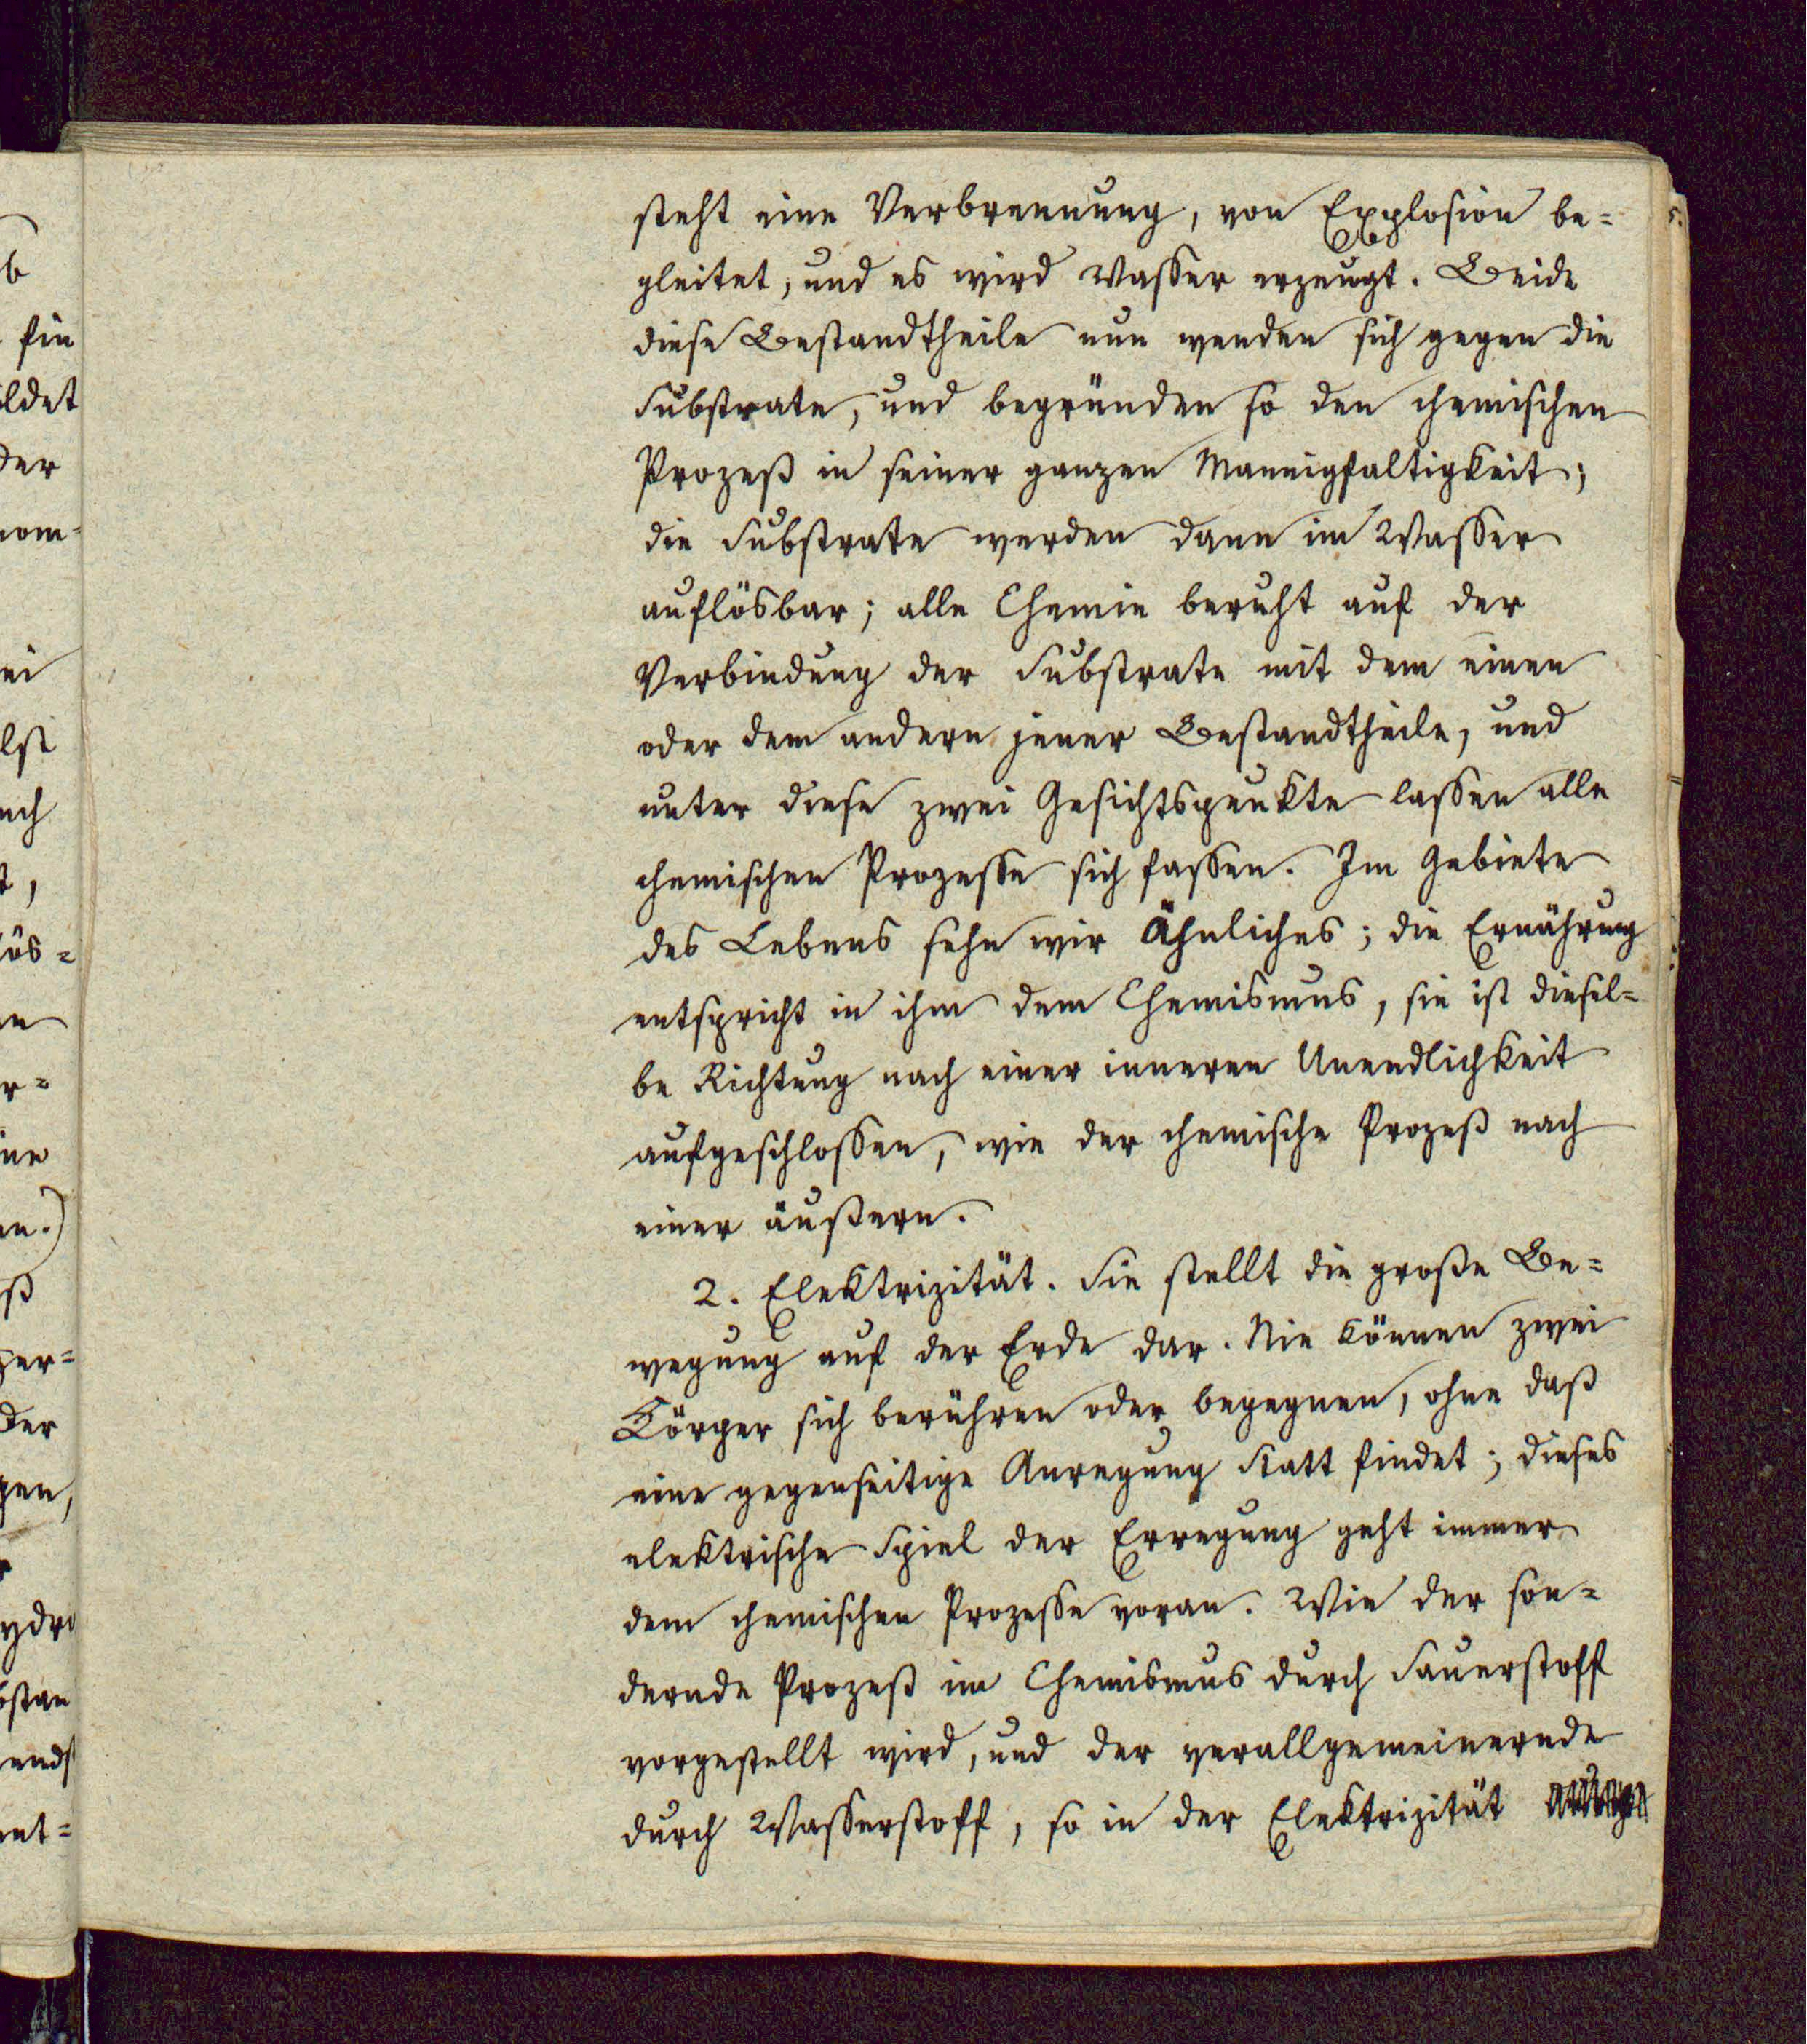 steht eine Verbrennung, von Explosion be=
gleitet, und es wird Wasser erzeugt. Beide
diese Bestandtheile nun wenden sich gegen die
Substrate, und begründen so den chemischen
Prozeß in seiner ganzen Mannigfaltigkeit;
die Substrate werden dann im Wasser
auflösbar; alle Chemie beruht auf der
Verbindung der Substrate mit dem einen
oder dem andern jener Bestandtheile, und
unter diese zwei Gesichtspunkte lassen alle
chemischen Prozesse sich fassen. Im Gebiete
des Lebens sehn wir Ähnliches; die Ernährung
entspricht in ihm dem Chemismus, sie ist diesel=
be Richtung nach einer inneren Unendlichkeit
aufgeschlossen, wie der chemische Prozeß nach
einer äußern.
2. Elektrizität. Sie stellt die große Be=
wegung auf der Erde dar. Nie können zwei
Körper sich berühren oder begegnen, ohne daß
eine gegenseitige Anregung Statt findet; dieses
elektrische Spiel der Erregung geht immer
dem chemischen Prozesse voran. Wie der son=
dernde Prozeß im Chemismus durch Sauerstoff
vorgestellt wird, und der verallgemeinernde
durch Wasserstoff, so in der Elektrizität